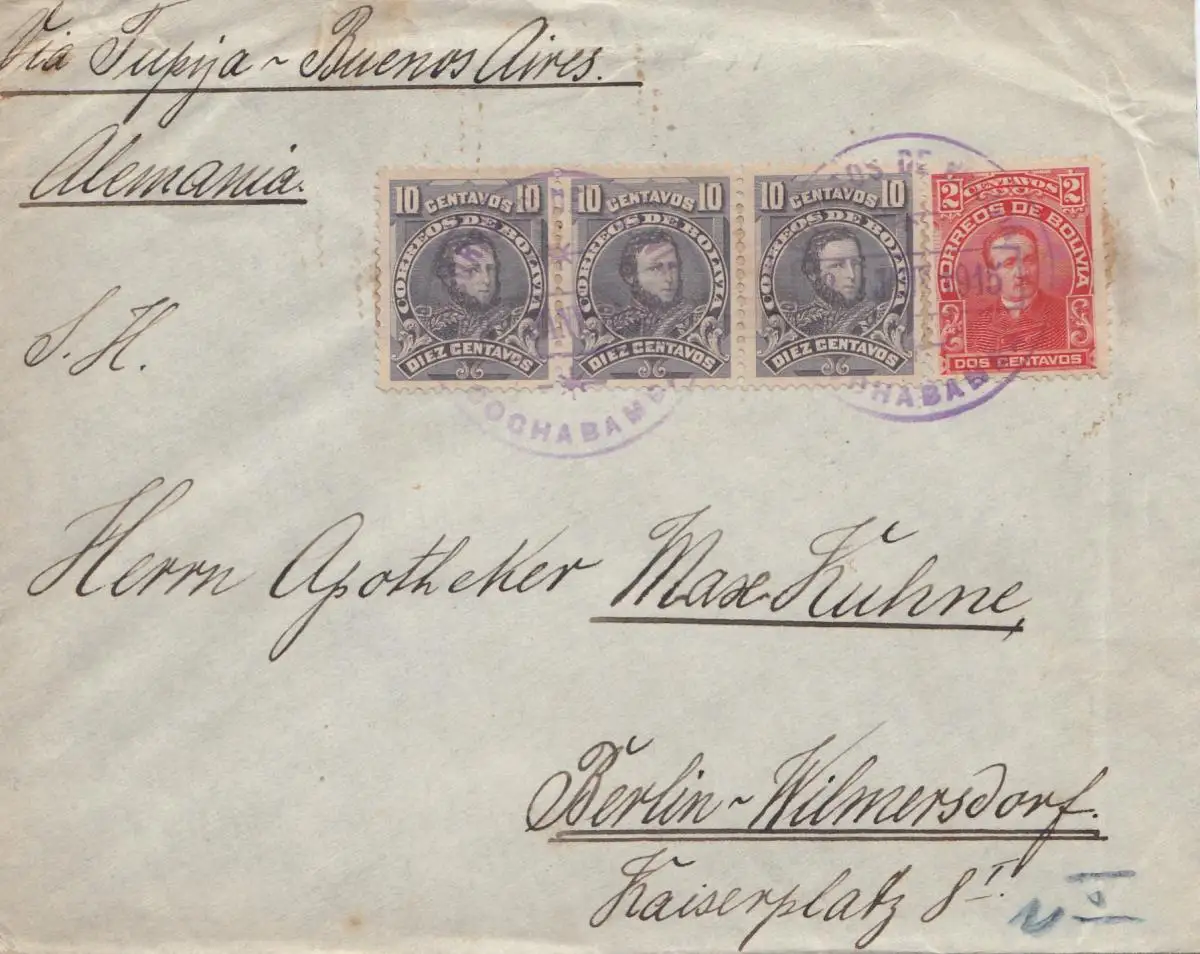 Via Tupija ~ Buenos Aires.
Alemania.
10 CENTAVOS 10
CORREOS DE BOLIVIA
DIEZ CENTAVOS
10 CENTAVOS 10
CORREOS DE BOLIVIA
DIEZ CENTAVOS
10 CENTAVOS 10
CORREOS DE BOLIVIA
DIEZ CENTAVOS
2 CENTAVOS 2
CORREOS DE BOLIVIA
DOS CENTAVOS
COCHABAMB
OS DE
1915
CHABAM
S. H.
Herrn Apotheker Max Kuhne,
Berlin ~ Wilmersdorf.
Kaiserplatz 8 I.